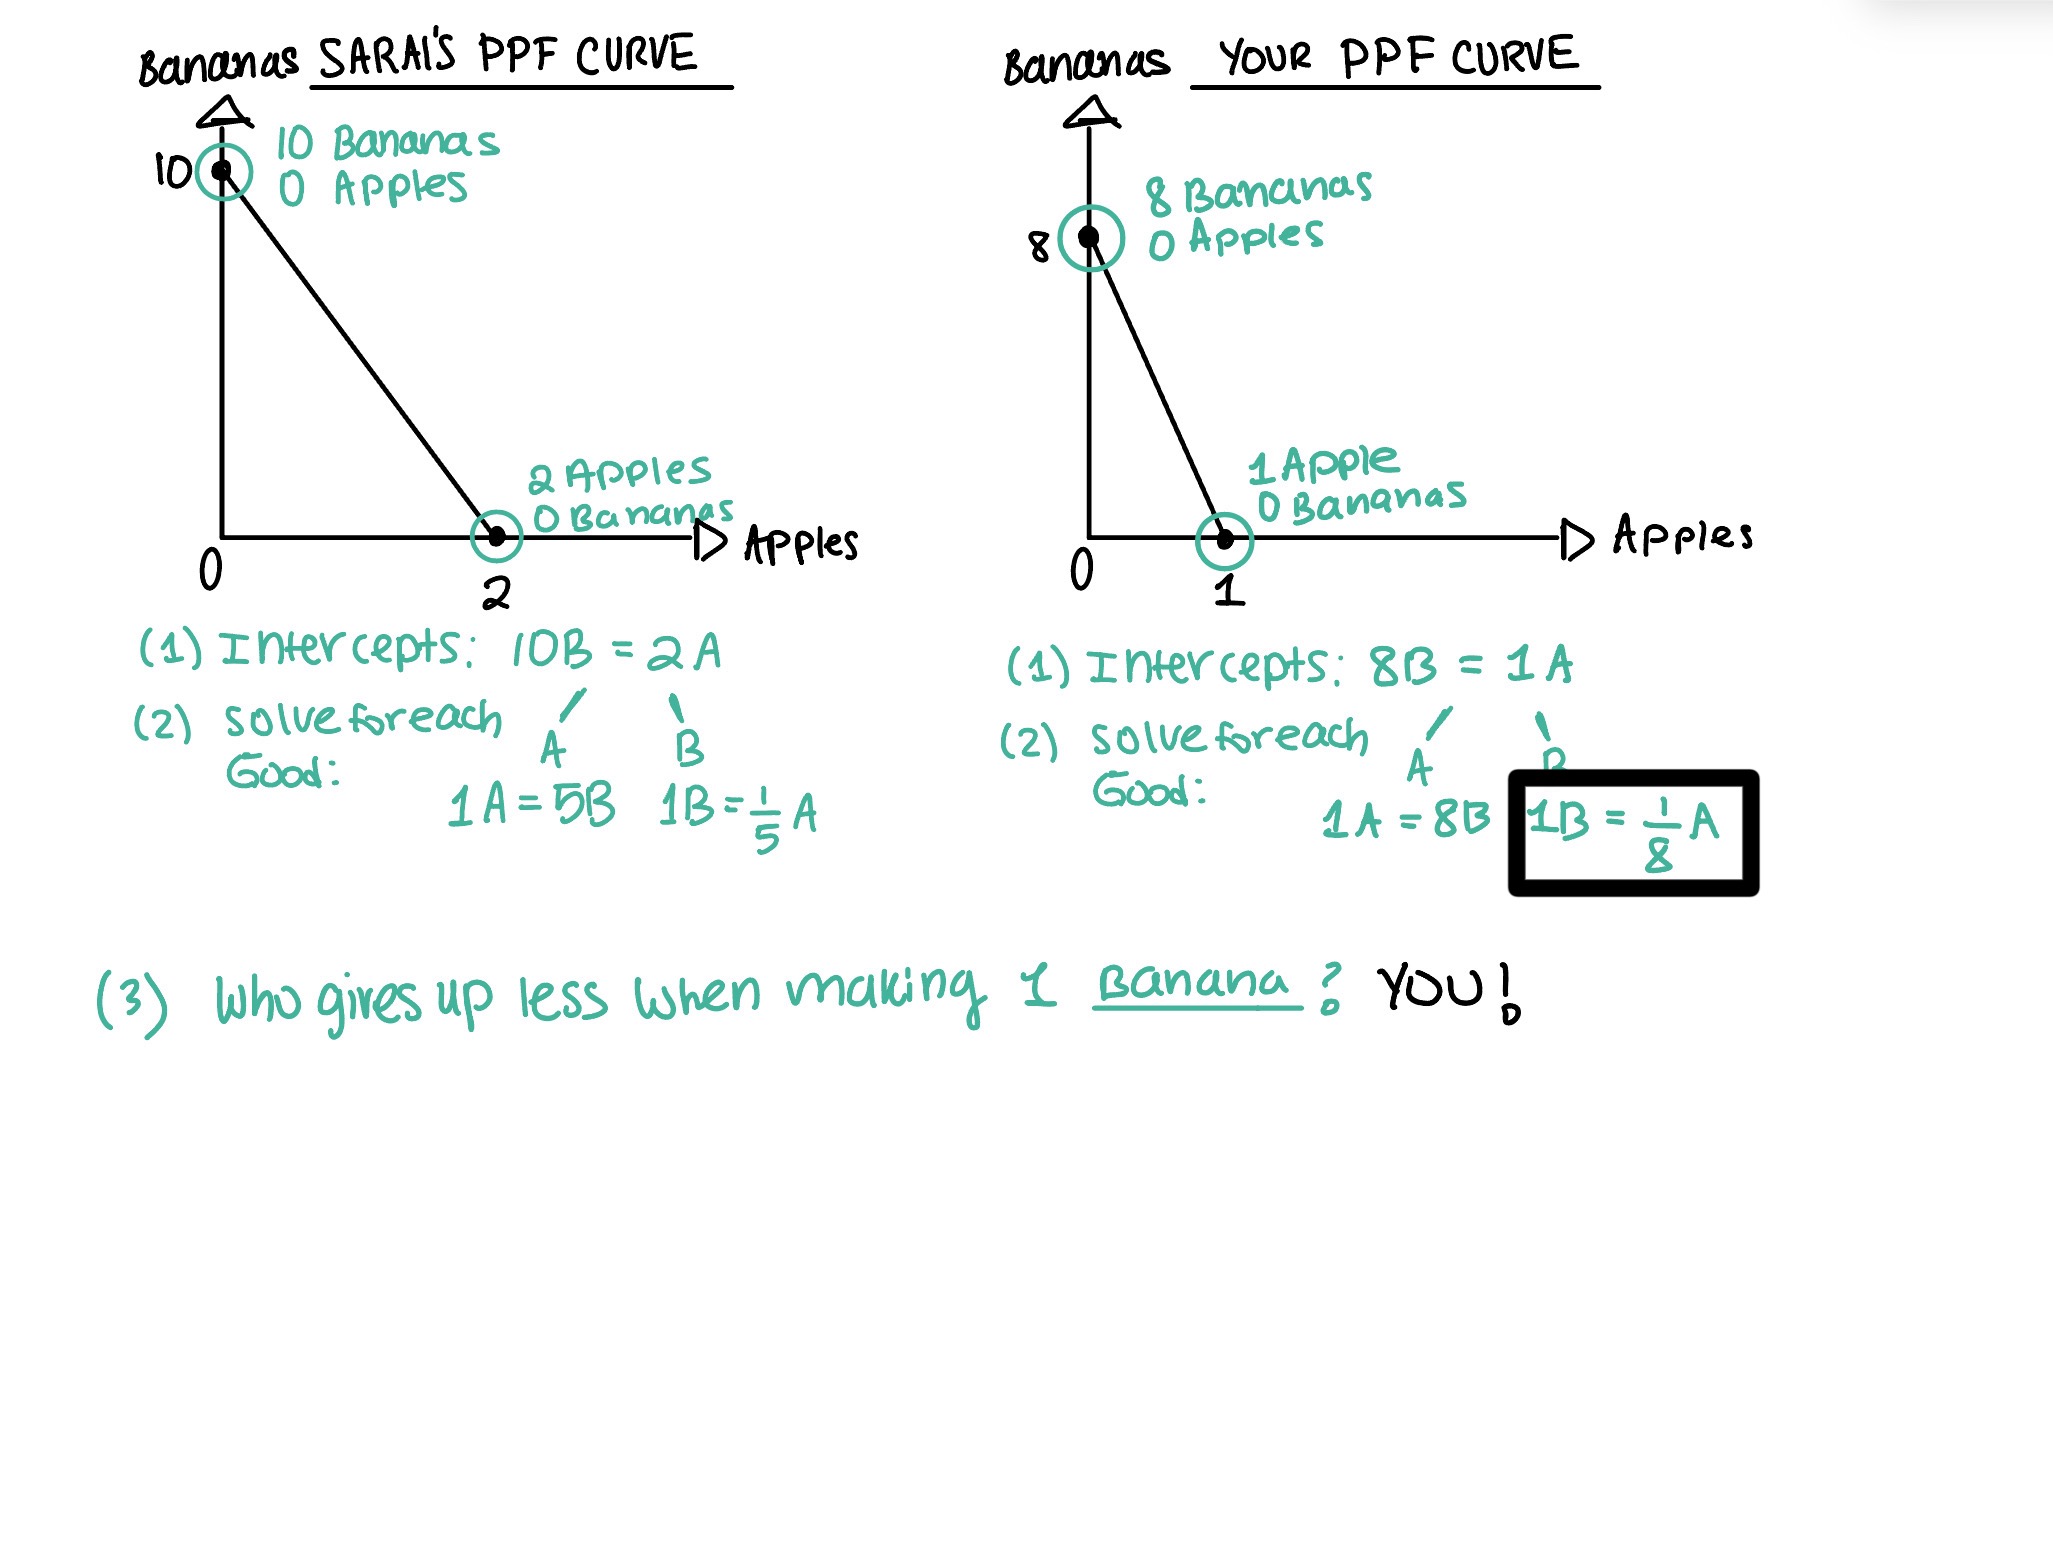 Bananas SARAI'S PPF CURVE
10 Bananas
0 Apples
10
2 Apples
0 Bananas
Apples
0
2
(1) Intercepts: 10B = 2A
(2) solve for each
Good:
A
B
1A = 5B 1B = 1/5 A
Bananas YOUR PPF CURVE
8 Bananas
0 Apples
8
1 Apple
0 Bananas
Apples
0
1
(1) Intercepts: 8B = 1A
(2) solve for each
Good:
A
B
1A = 8B 1B = 1/8 A
(3) Who gives up less when making 1 Banana? YOU!